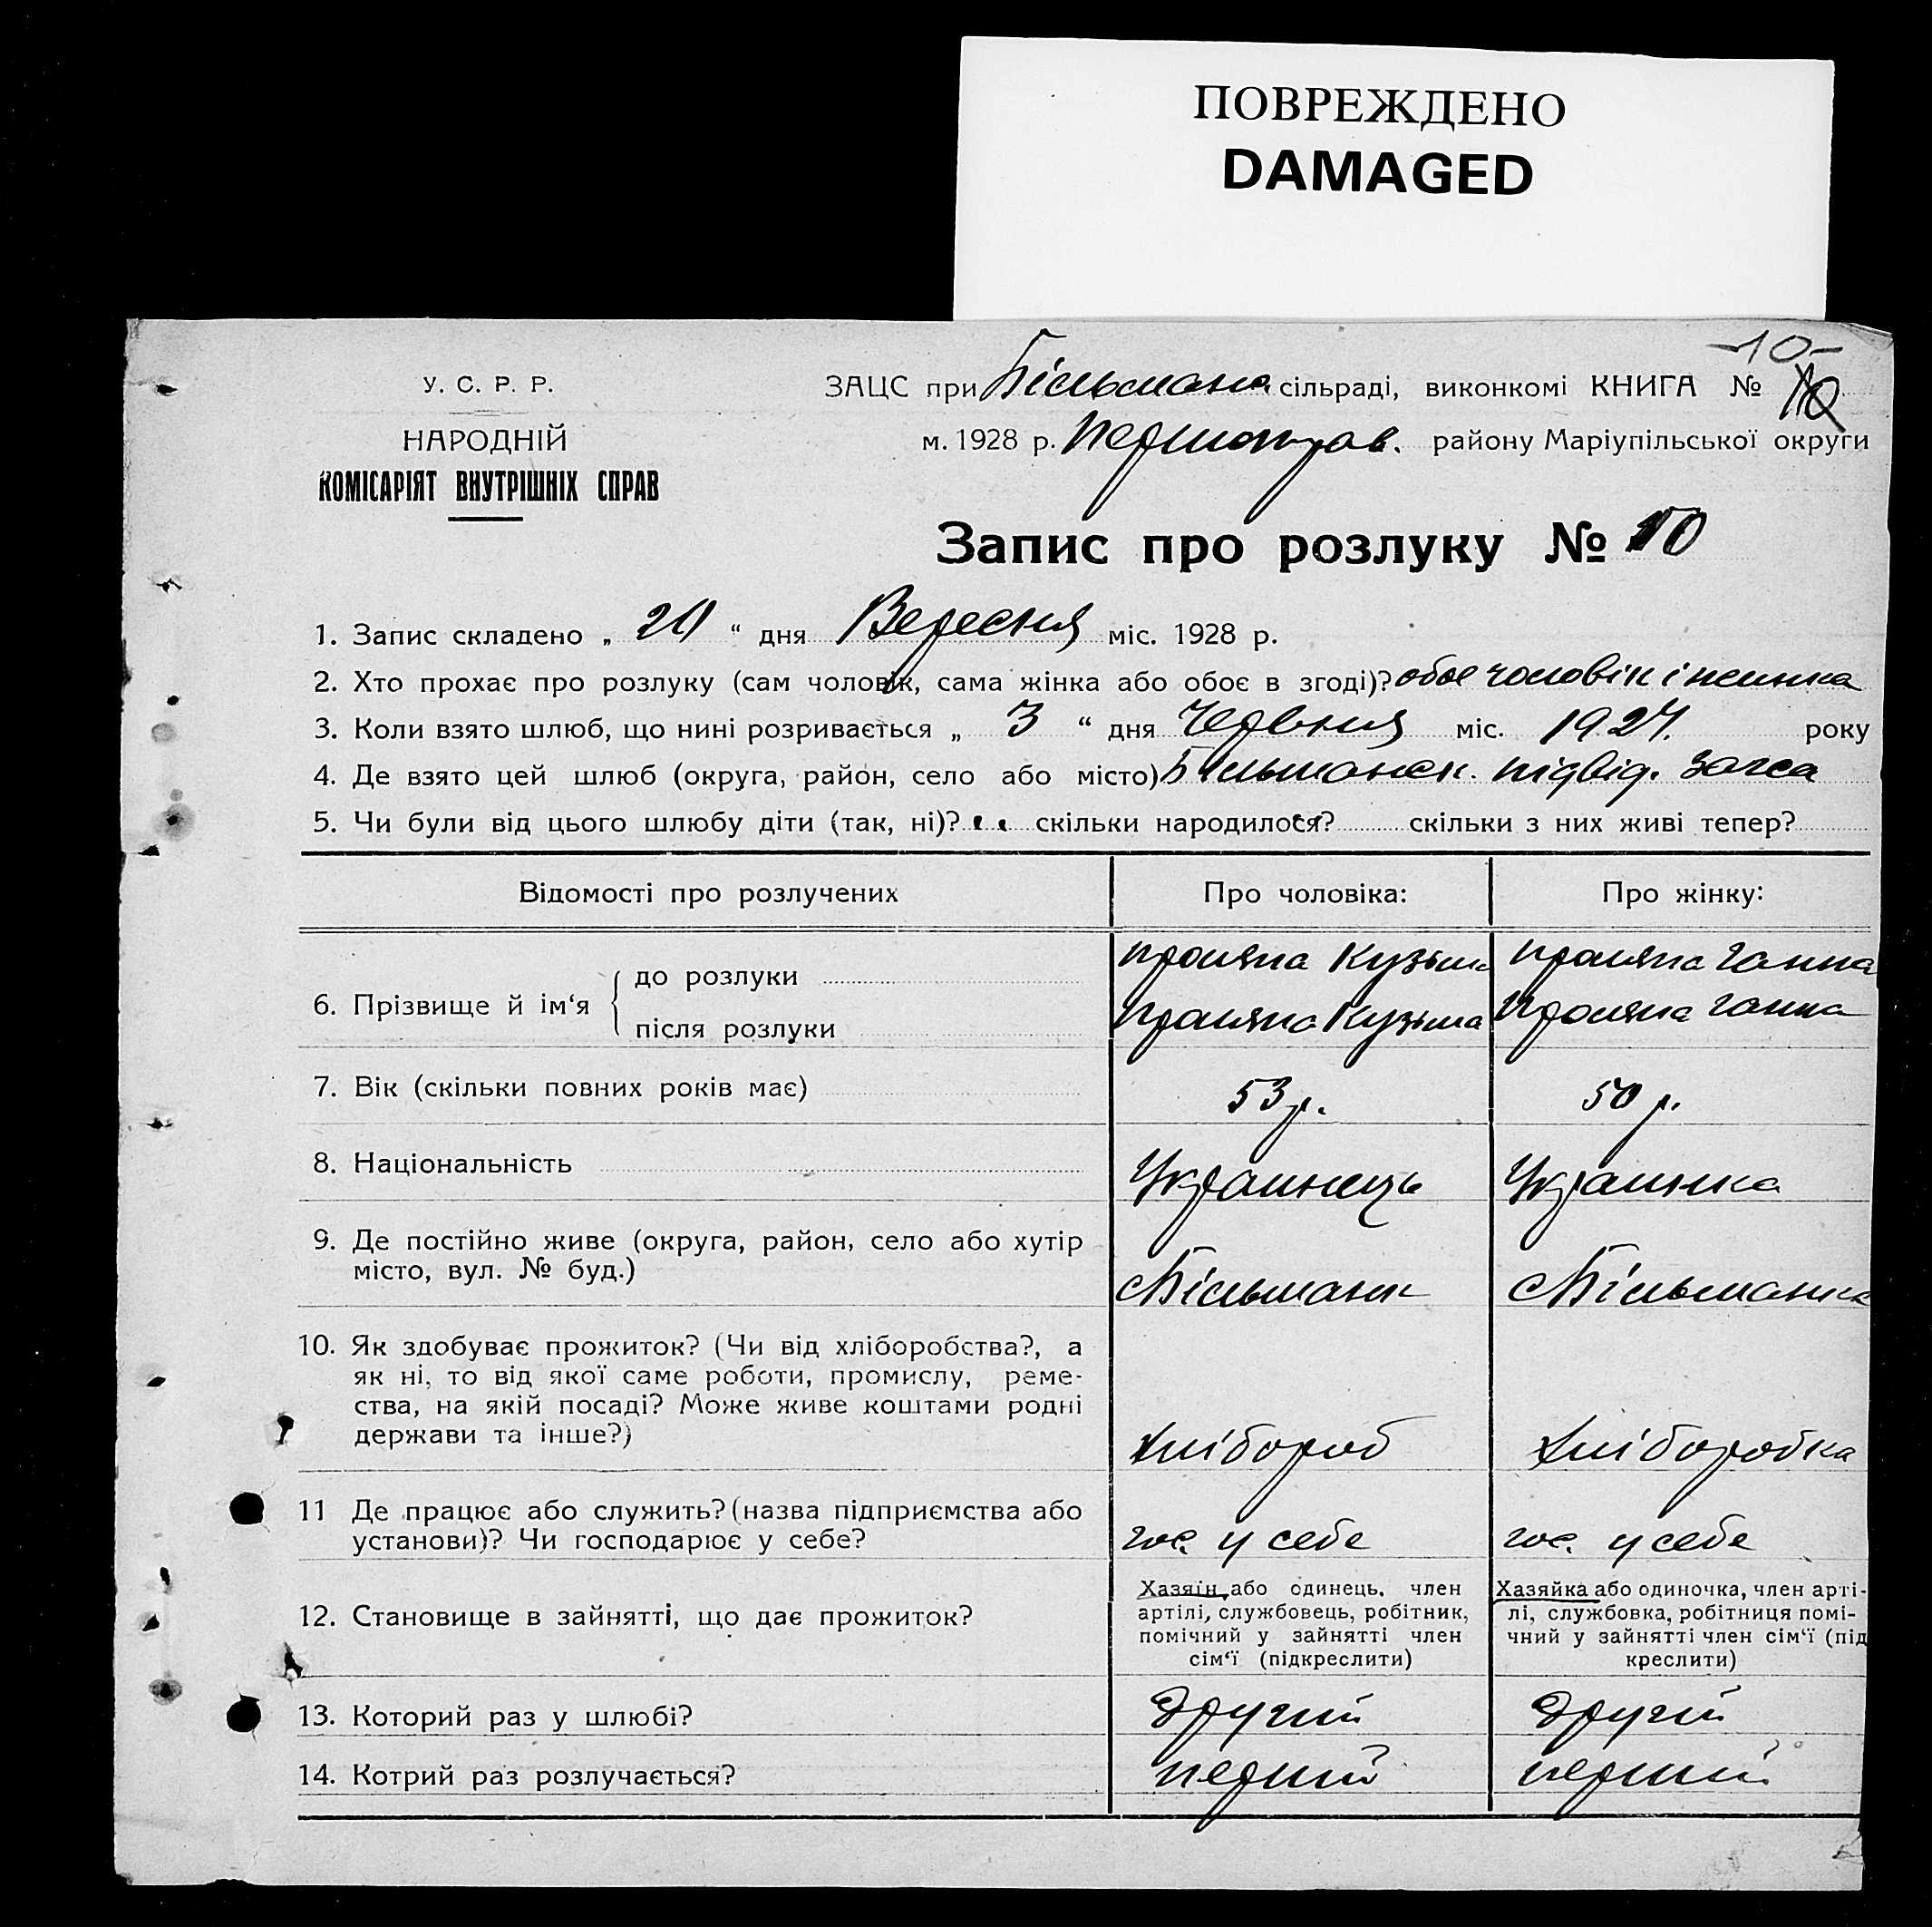 ПОВРЕЖДЕНО
DAMAGED
-10-
У. С. Р. Р.
ЗАЦС при Більманк. сільраді, виконкомі КНИГА № 10
НАРОДНІЙ
м. 1928 р. Першотрав. району Маріупільської округи
КОМІСАРІЯТ ВНУТРІШНІХ СПРАВ
Запис про розлуку № 10
1. Запис складено „ 20 “ дня Вересня міс. 1928 р.
2. Хто прохає про розлуку (сам чоловік, сама жінка або обоє в згоді)? обое чоловік і жинка
3. Коли взято шлюб, що нині розривається „ 3 “ дня Червня міс. 1927. року
4. Де взято цей шлюб (округа, район, село або місто) Більманск. підвід. Загса
5. Чи були від цього шлюбу діти (так, ні)? скільки народилося? скільки з них живі тепер?
Відомості про розлучених Про чоловіка: Про жінку:
6. Прізвище й ім‘я
до розлуки Кузьма Ганна
після розлуки Кузьма Ганна
7. Вік (скільки повних років має) 53 р. 50 р.
8. Національність Украинець Украинка
9. Де постійно живе (округа, район, село або хутір
місто, вул. № буд.) с Більманк с Більманка
10. Як здобуває прожиток? (Чи від хліборобства?, а
як ні, то від якої саме роботи, промислу, реме-
ства, на якій посаді? Може живе коштами родні
держави та інше?) Хлібороб Хліборобка
11 Де працює або служить? (назва підприємства або
установи)? Чи господарює у себе? гос. у себе гос. у себе
12. Становище в зайнятті, що дає прожиток?
Хазяїн або одинець, член
артілі, службовець, робітник,
помічний у зайнятті член
сім‘ї (підкреслити)
Хазяйка або одиночка, член арті-
лі, службовка, робітниця помі-
чний у зайнятті член сім‘ї (під
креслити)
13. Которий раз у шлюбі? Другий Другий
14. Котрий раз розлучається? перший перший